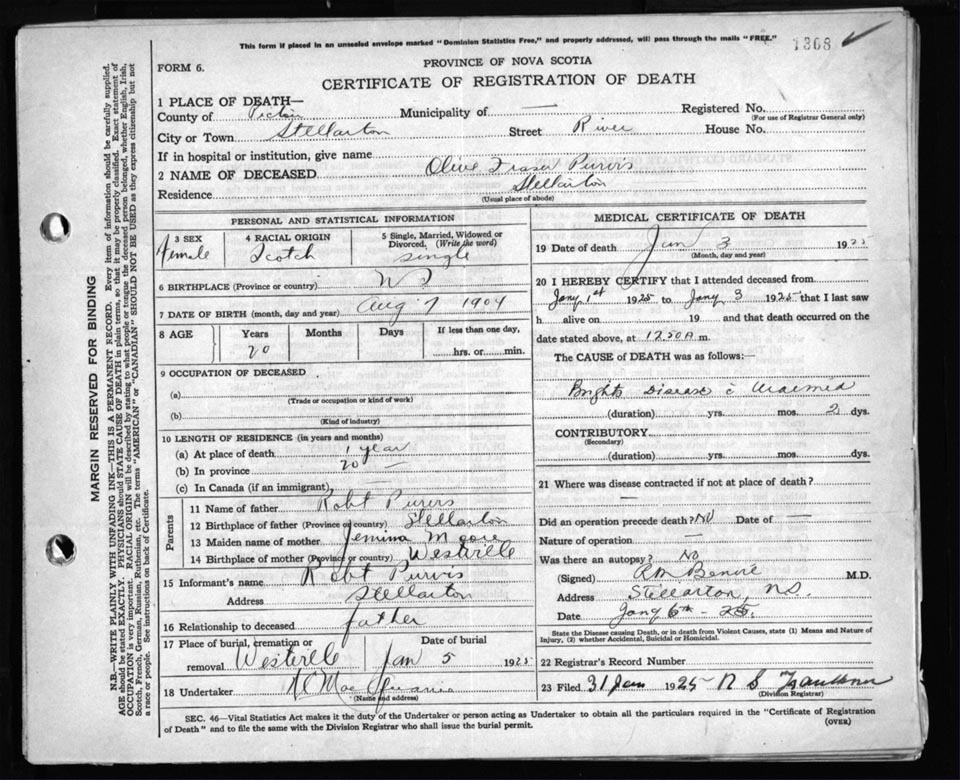 This form if placed in an unsealed envelope marked "Dominion Statistics Free," and properly addressed, will pass through the mails "FREE."
1368 ✓
FORM 6.
PROVINCE OF NOVA SCOTIA
CERTIFICATE OF REGISTRATION OF DEATH
1 PLACE OF DEATH—
County of Pictou Municipality of — Registered No.
(For use of Registrar General only)
City or Town Stellarton Street River House No.
If in hospital or institution, give name
2 NAME OF DECEASED Olive Fraser Purvis
Residence Stellarton
(Usual place of abode)
PERSONAL AND STATISTICAL INFORMATION
3 SEX 4 RACIAL ORIGIN 5 Single, Married, Widowed or Divorced. (Write the word)
female Scotch single
6 BIRTHPLACE (Province or country) N S
7 DATE OF BIRTH (month, day and year) Aug 7 1904
8 AGE Years Months Days If less than one day,
20 hrs. or min.
9 OCCUPATION OF DECEASED
(a)
(Trade or occupation or kind of work)
(b)
(Kind of industry)
10 LENGTH OF RESIDENCE (in years and months)
(a) At place of death 1 year
(b) In province 20 —
(c) In Canada (if an immigrant) —
Parents
11 Name of father Robt Purvis
12 Birthplace of father (Province or country) Stellarton
13 Maiden name of mother Jemima Moore
14 Birthplace of mother (Province or country) Westville
15 Informant's name Robt Purvis
Address Stellarton
16 Relationship to deceased father
17 Place of burial, cremation or removal Westville Date of burial Jan 5 1925
18 Undertaker
(Name and address)
MEDICAL CERTIFICATE OF DEATH
19 Date of death Jan 3 1925
(Month, day and year)
20 I HEREBY CERTIFY that I attended deceased from
Jany 1st 1925 to Jany 3 1925 that I last saw
h alive on 19 and that death occurred on the
date stated above, at 12.50 A m.
The CAUSE of DEATH was as follows:—
Brights Disease c Uraemia
(duration) yrs. mos. 2 dys.
CONTRIBUTORY
(Secondary)
(duration) yrs. mos. dys.
21 Where was disease contracted if not at place of death?
—
Did an operation precede death? No Date of —
Nature of operation —
Was there an autopsy? No
(Signed) M.D.
Address Stellarton, N.S.
Date Jany 6th - 25.
State the Disease causing Death, or in death from Violent Causes, state (1) Means and Nature of
Injury, (2) whether Accidental, Suicidal or Homicidal.
22 Registrar's Record Number
23 Filed 31 Jan 1925
(Division Registrar)
SEC. 46—Vital Statistics Act makes it the duty of the Undertaker or person acting as Undertaker to obtain all the particulars required in the "Certificate of Registration
of Death" and to file the same with the Division Registrar who shall issue the burial permit. (OVER)
MARGIN RESERVED FOR BINDING
N.B.—WRITE PLAINLY WITH UNFADING INK—THIS IS A PERMANENT RECORD. Every item of information should be carefully supplied.
AGE should be stated EXACTLY. PHYSICIANS should STATE CAUSE OF DEATH in plain terms, so that it may be properly classified. Exact statement of
OCCUPATION is very important. RACIAL ORIGIN will be described by stating to what people or tongue the deceased person belonged, whether English, Irish,
Scotch, French, German, Russian, Ruthenian, etc. The terms "AMERICAN" or "CANADIAN" SHOULD NOT BE USED as they express citizenship but not
a race or people. See instructions on back of Certificate.